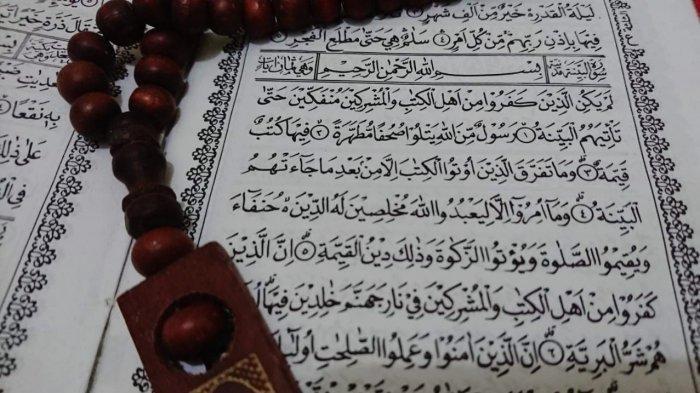 لَيْلَةُ الْقَدْرِ ەۙ خَيْرٌ مِّنْ اَلْفِ شَهْرٍ
فِيْهَا بِاِذْنِ رَبِّهِمْ مِّنْ كُلِّ اَمْرٍ ۙ ٤ سَلٰمٌ هِيَ حَتّٰى مَطْلَعِ الْفَجْرِ
سُوْرَةُ الْبَيِّنَةِ مَدَنِيَّةٌ بِسْمِ اللّٰهِ الرَّحْمٰنِ الرَّحِيْمِ وَهِيَ ثَمَانُ اٰيَاتٍ
لَمْ يَكُنِ الَّذِيْنَ كَفَرُوْا مِنْ اَهْلِ الْكِتٰبِ وَالْمُشْرِكِيْنَ مُنْفَكِّيْنَ حَتّٰى
تَأْتِيَهُمُ الْبَيِّنَةُ ۙ ١ رَسُوْلٌ مِّنَ اللّٰهِ يَتْلُوْا صُحُفًا مُّطَهَّرَةً ۙ ٢ فِيْهَا كُتُبٌ
قَيِّمَةٌ ۗ ٣ وَمَا تَفَرَّقَ الَّذِيْنَ اُوْتُوا الْكِتٰبَ اِلَّا مِنْ بَعْدِ مَا جَآءَتْهُمُ
الْبَيِّنَةُ ۗ ٤ وَمَآ اُمِرُوْٓا اِلَّا لِيَعْبُدُوا اللّٰهَ مُخْلِصِيْنَ لَهُ الدِّيْنَ ەۙ حُنَفَآءَ
وَيُقِيْمُوا الصَّلٰوةَ وَيُؤْتُوا الزَّكٰوةَ وَذٰلِكَ دِيْنُ الْقَيِّمَةِ ۗ ٥ اِنَّ الَّذِيْنَ
كَفَرُوْا مِنْ اَهْلِ الْكِتٰبِ وَالْمُشْرِكِيْنَ فِيْ نَارِ جَهَنَّمَ خٰلِدِيْنَ فِيْهَا ۗ
هُمْ شَرُّ الْبَرِيَّةِ ۗ ٦ اِنَّ الَّذِيْنَ اٰمَنُوْا وَعَمِلُوا الصّٰلِحٰتِ
بِهٖ نَقْعًا
عَلٰى